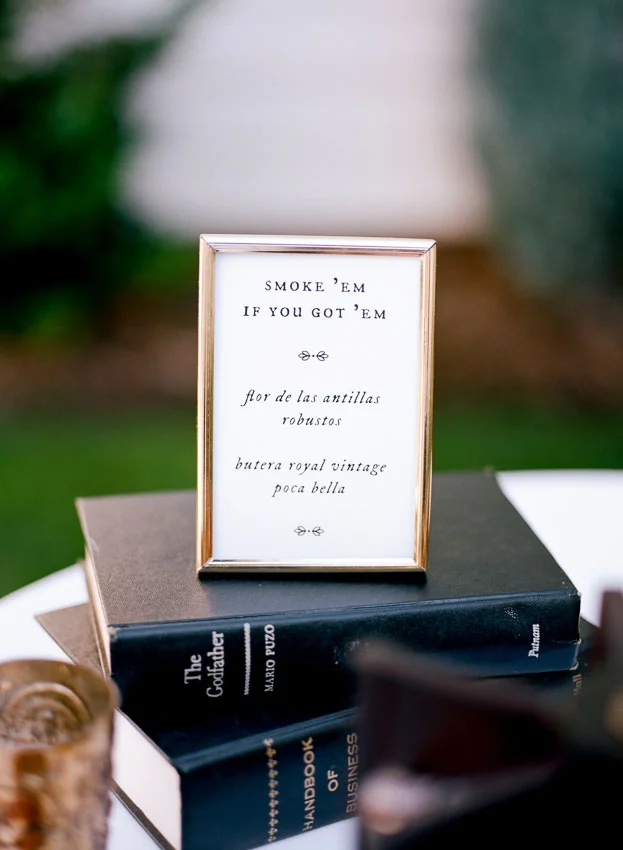 SMOKE 'EM
IF YOU GOT 'EM
flor de las antillas
robustos
butera royal vintage
poca bella
The
Godfather
MARIO PUZO
Putnam
HANDBOOK
OF
BUSINESS